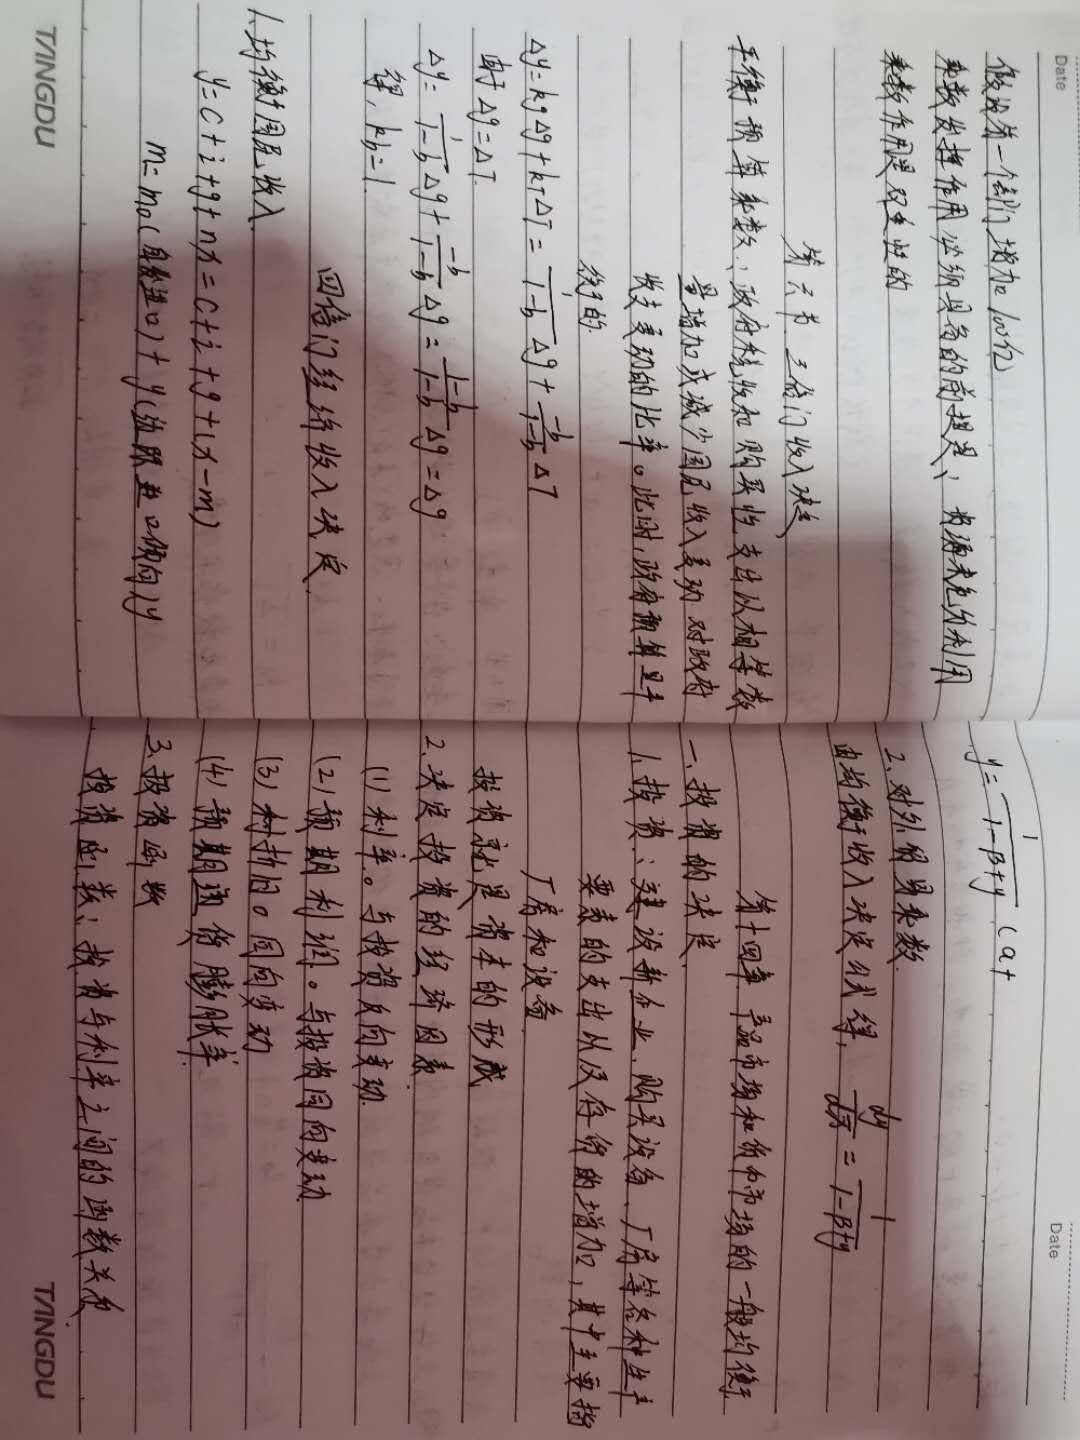 Date
假设第一个部门增加100亿
乘数发挥作用必须具备的前提是,资源未充分利用
乘数作用是双重性的
第六节 三部门收入决定
平衡预算乘数:政府税收和购买性支出以相等数
量增加或减少国民收入变动对政府
收支变动的比率。此时,政府预算是平
衡的.
Δy=kgΔg+kTΔT=1/(1-b)Δg+(-b)/(1-b)ΔT
由于Δg=ΔT.
Δy=1/(1-b)Δg+(-b)/(1-b)Δg=(1-b)/(1-b)Δg=Δg
得,kb=1.
四部门经济收入决定.
1.均衡国民收入
y=c+i+g+nx=c+i+g+(x-m)
m=m0(自发进口)+γ(边际进口倾向)y
TANGDU
Date
y=1/(1-β+γ)(a+
2.对外贸易乘数.
由均衡收入决定公式得, dy/dx̄=1/(1-β+γ)
第十四章 产品市场和货币市场的一般均衡
一.投资的决定.
1.投资:建设新企业、购买设备、厂房等各种生产
要素的支出以及存货的增加,其中主要指
厂房和设备.
投资就是资本的形成
2.决定投资的经济因素.
(1)利率。与投资反向变动.
(2)预期利润。与投资同向变动
(3)折旧。同向变动
(4)预期通货膨胀率.
3.投资函数
投资函数:投资与利率之间的函数关系.
TANGDU